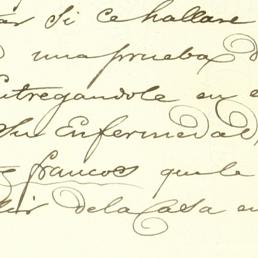 ar Si ce hallare
una prueba d
ntregandole en e
Su Enfermedad,
francos que le
lir dela Casa en